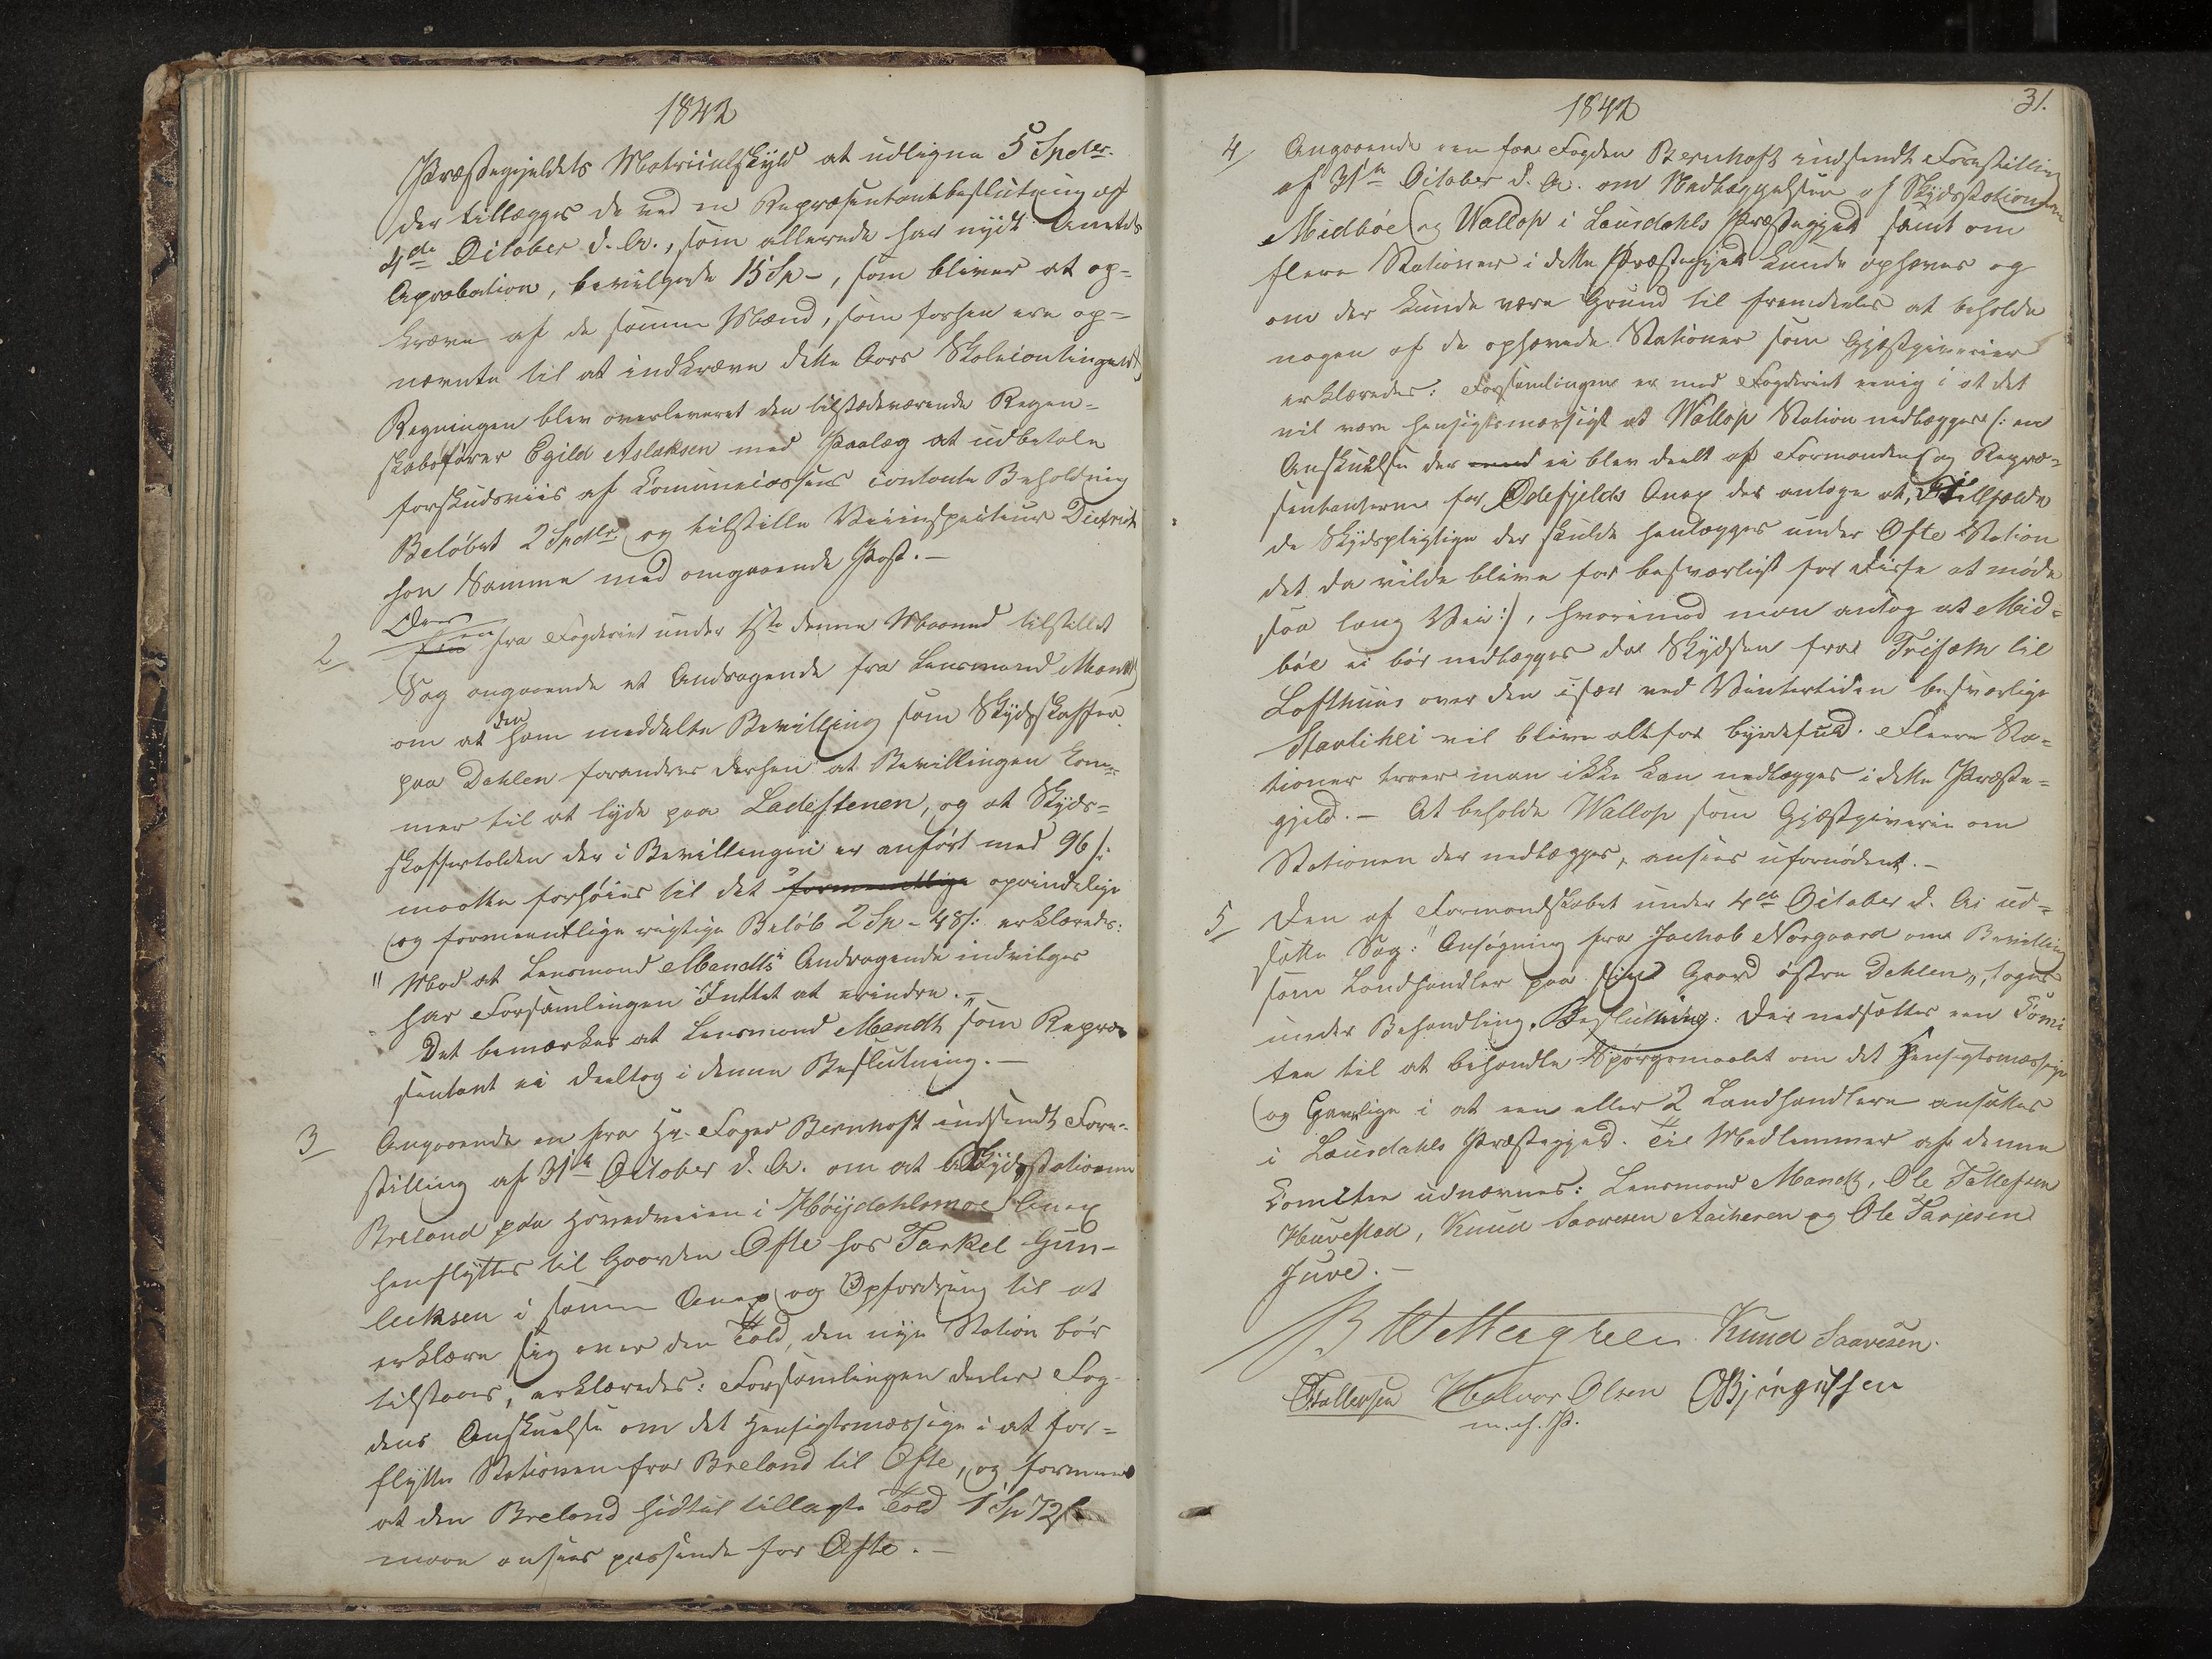 1842
Præstegjeldets Matriculskyld at udligne 5 Spdlr.
der tillægges de ved en Repræsentantbeslutning af
4de October d. A., som allerede har nydt Amtets
Aprobation, bevilgede 15 Sp -, som bliver at op=
kræve af de samme Mænd, som forhen ere op=
nævnte til at indkræve dette Aars Skolecontingent,
Regningen blev overleveret den tilstædeværende Regn=
skabsfører Egild Aslaksen med Paalæg at udbetale
forskudsviis af Communecassens contante Beholdning
Beløbet 2 Spdlr. og tilstille Veiinspecteur Dietrich
son Samme med omgaaende Post. -
2 Over en fra Fogderiet under 1ste denne Maaned tilstillet
Sag angaaende et Andragende fra Lensmand Mandt
om at den ham meddelte Bevilling som Skydsskaffer
paa Dahlen forandres derhen at Bevillingen kom=
mer til at lyde paa Ladestenen, og at Skyds=
skaffertolden der i Bevillingen er anført med 96 s:
maatte forhøies til det formeentlige oprindelige
og formeentlige rigtige Beløb 2 Sp - 48 s: erklæredes:
"Mod at Lensmand Mandts Andragende indvilges
har Forsamlingen Intet at erindre. -"
Det bemærkes at Lensmand Mandt som Repræ
sentant ei deeltog i denne Beslutning. -
3 Angaaende en fra Hr. Foged Bernhoft indsendt Fore=
stilling af 31te October d. A. om at Skydsstationen
Breland paa Hovedveien i Høijdahlsmoe Anex
henflyttes til Gaarden Ofte hos Tarkel Gun=
leiksen i samme Anex og Opfordring til at
erklære sig over den Told, den nye Station bør
tilstaaes, erklæredes: Forsamlingen deeler Fog=
dens Anskuelse om det Hensigtsmæssige i at for=
flytte Stationen fra Breland til Ofte, og formener
at den Breland hidtil tillagte Told 1 Sp 72 s:
maae ansees passende for Ofte. -
1842
31.
4 Angaaende een fra Fogden Bernhoft indsendt Forestilling
af 31te October d. A. om Nedlæggelsen af Skydsstationerne
Midbøe og Wallop i Laurdahls Præstegjeld samt om
flere Stationer i dette Præstegjeld kunde ophæves og
om der kunde være Grund til fremdeles at beholde
nogen af de ophævede Stationer som Gjæstgiverier
erklæredes: Forsamlingen er med Fogderiet eenig i at det
vil være hensigtsmæssigt at Wallop Station nedlægges /: en
Anskuelse der med ei blev deelt af Formanden og Repræ=
sentanterne for Ødefjelds Anex der antage at, i Tilfælde
de Skydspligtige der skulde henlægges under Ofte Station
det da vilde blive for besværligt for Disse at møde
saa lang Vei :/, hvorimod man antog at Mid=
bøe ei bør nedlægges da Skydsen fra Trisæth til
Lofthuus over den især ved Vintertiden besværlige
Skavlihei vil blive altfor byrdefuld. Fleere Sta=
tioner troer man ikke kan nedlægges i dette Præste=
gjeld. - At beholde Wallop som Gjæstgiverie om
Stationen der nedlægges, ansees ufornødent. -
5 Den af Formandskabet under 4de October d. A. ud=
satte Sag: "Ansøgning fra Jachob Norgaard om Bevilling
som Landhandler paa sin Gaard østre Dahlen", toges
under Behandling. Beslutning: Der nedsættes een Comi
tee til at behandle Spørgsmaalet om det Hensigtsmæssige
og Gavnlige i at een eller 2 Landhandlere ansættes
i Laurdahls Præstegjeld. Til Medlemmer af denne
Comitee udnævnes: Lensmand Mandt, Ole Tallefsen
Huvestad, Knud Saavesen Aacheren og Ole Tarjesen
Juve. -
B Wettergreen Knud Saavesen.
OTallefsen Halvor Olsen OBjørgufsen
m. f. P.